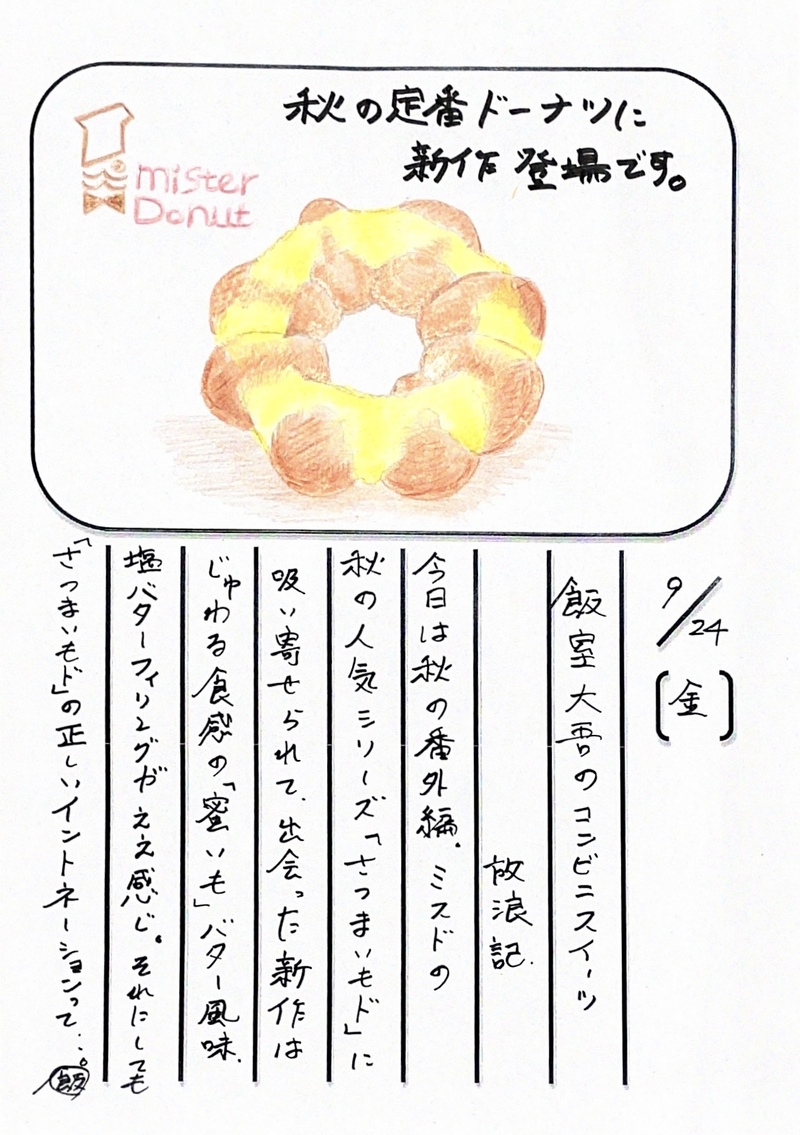 秋の定番ドーナツに
新作登場です。
mister
Donut
9/24
(金)
飯室大吾のコンビニスイーツ
放浪記.
今日は秋の番外編. ミスドの
秋の人気シリーズ「さつまいもド」に
吸い寄せられて、出会った新作は
じゅわる食感の「蜜いも」バター風味.
塩バターフィリングがええ感じ。それにしても
「さつまいもド」の正しいイントネーションって…。
飯